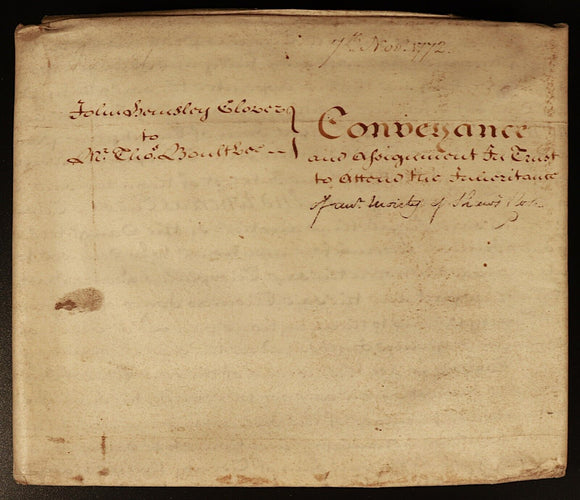 7th Novr. 1772.
John Bemsley Glover
to
Mr. Thos. Boultbee
Conveyance
and Assignment In Trust
to Attend the Inheritance
of Moiety of Shaws